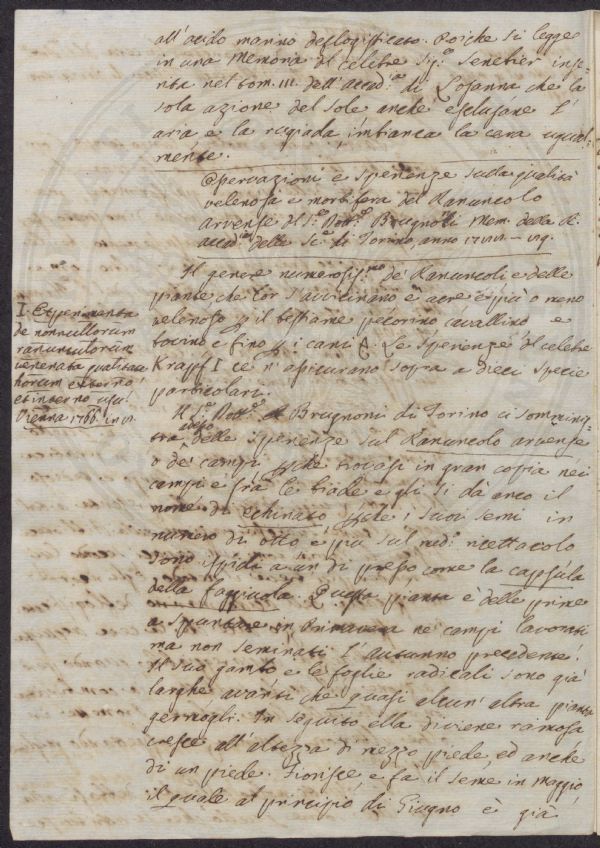 all'acido marino deflogisticato. Poiche si legge
in una Memoria del celebre Sig.e Senebier inse-
rita nel tom. III. dell'Accad.a di Losanna che la
sola azione del Sole anche esclusane l'
aria e la rugiada, imbianca la cera ugual-
mente.
Osservazioni e sperienze sulla qualità
velenosa e mortifera del Ranuncolo
arvense del S.e Dott.e Brugnoli Mem. della R.
accad. delle Sc.e di Torino, anno
Il genere numerosiss.mo de' Ranuncoli e delle
piante che lor s'avvicinano è acre e più o meno
velenoso p il bestiame pecorino cavallino e
bovino e fino p i cani. Le sperienze del celebre
Krapf I ce n'assicurano sopra a dieci specie
particolari.
I Experimenta
de nonnullorum
ranunculorum
venenata qualitate
horum externo
et interno usu
Vienna 1766. in 8.
Il S.e Dott.e Brugnoni di Torino ci sommini-
stra delle sperienze sul Ranuncolo arvense
o de' campi che trovasi in gran copia nei
campi e frà le biade e gli si dà anco il
nome di echinato, i suoi semi in
numero di otto e più sul nudo ricettacolo
sono ispidi a un di presso come la capsula
della faggiuola. Questa pianta è delle prime
a spuntare in Primavera ne' campi lavorati
ma non seminati l'autunno precedente.
Il suo gambo e le foglie radicali sono già
larghe avanti che quasi alcun'altra pianta
germogli. In seguito ella diviene ramosa
cresce all'altezza di mezzo piede, ed anche
di un piede. Fiorisce e fa il seme in Maggio,
il quale al principio di Giugno è già